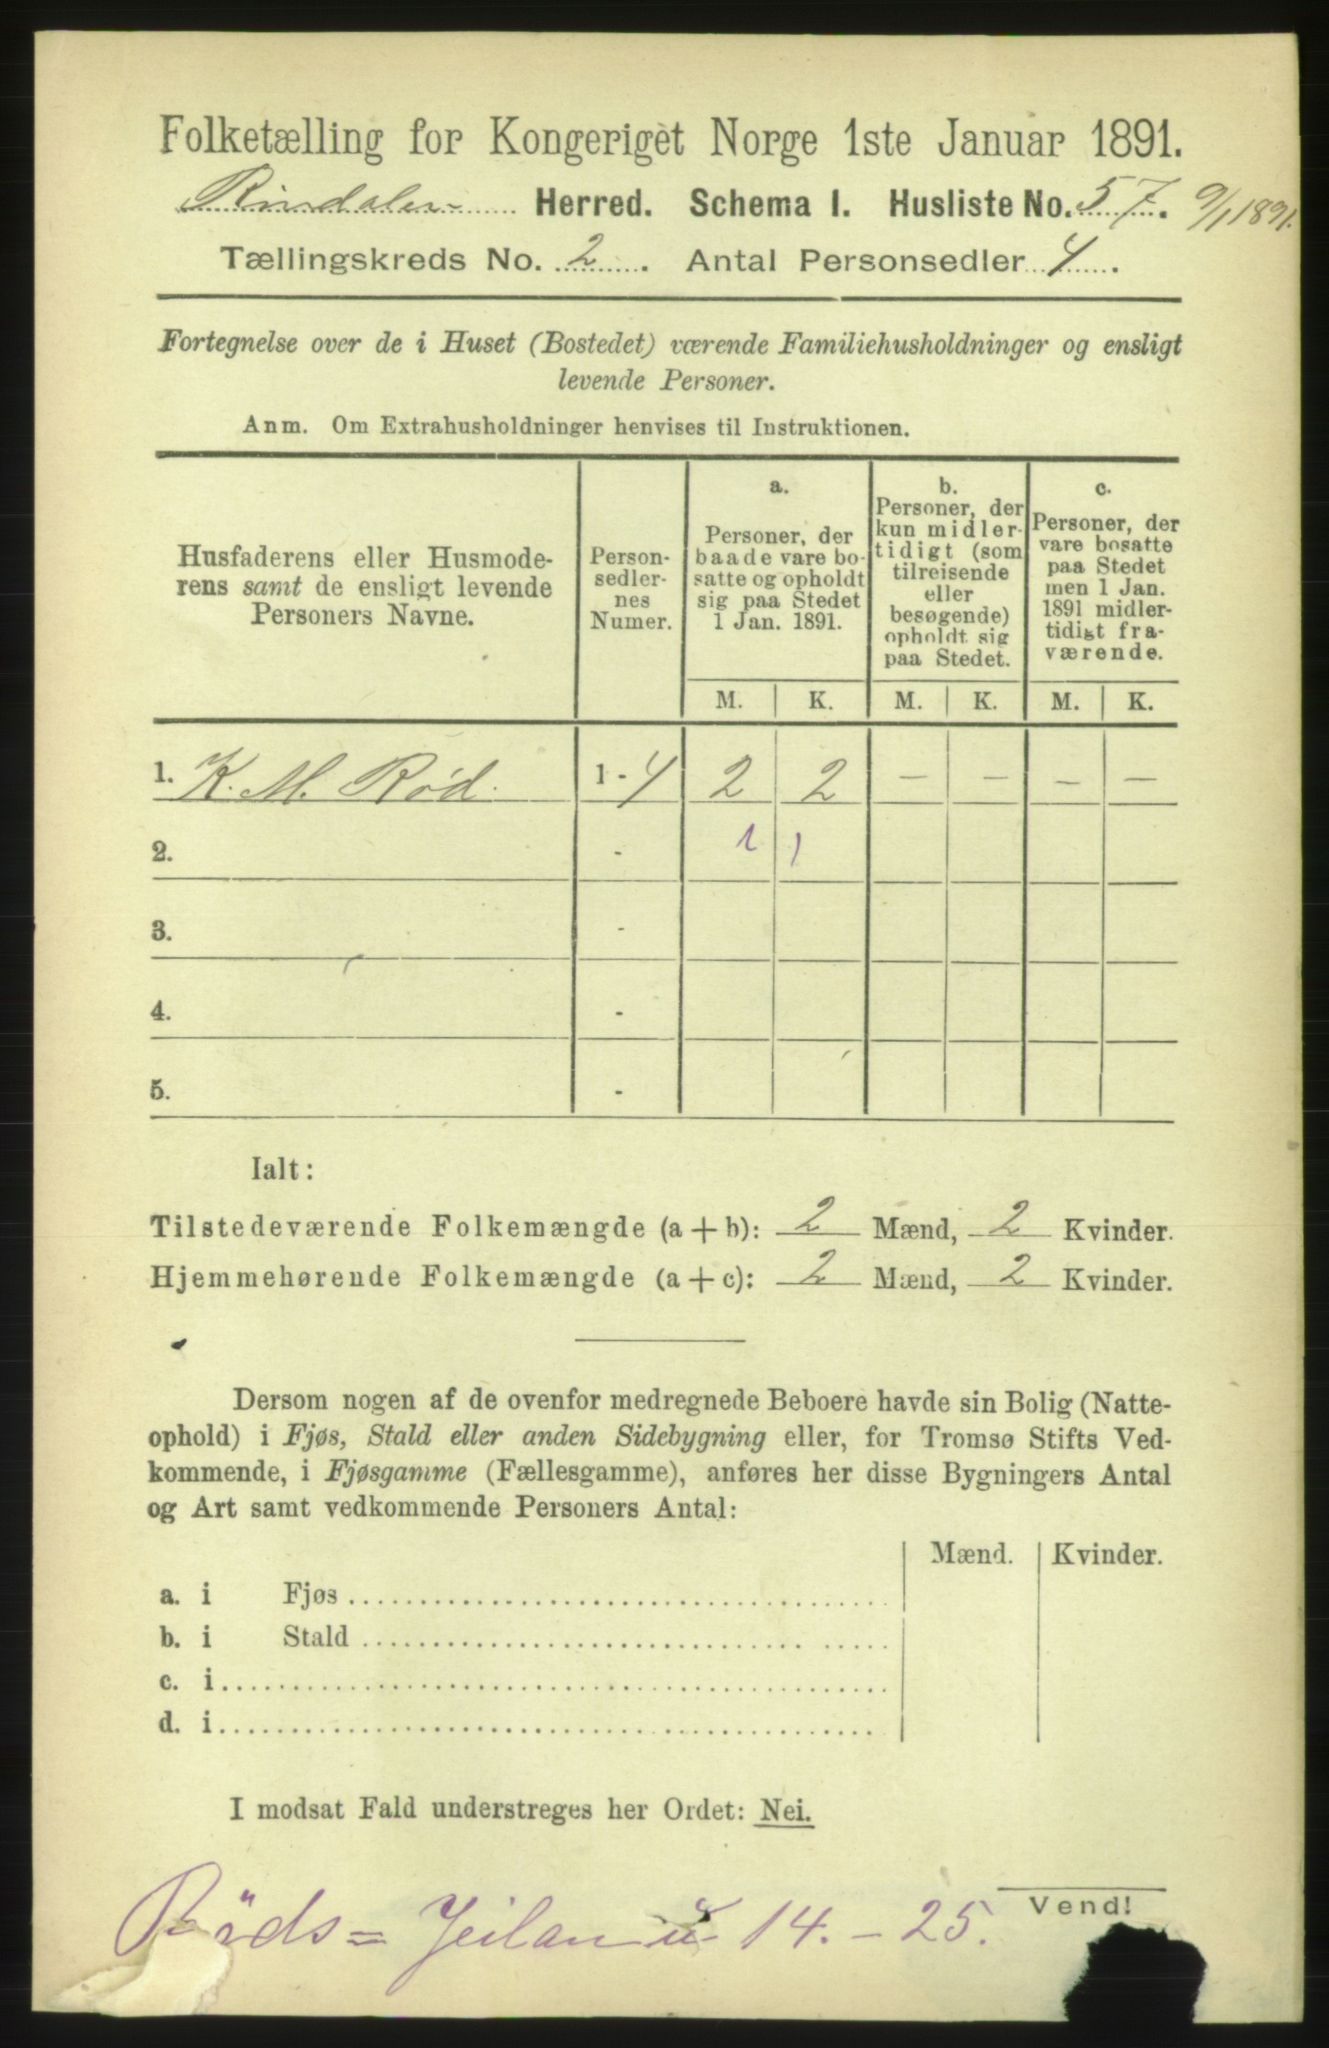 Folketælling for Kongeriget Norge 1ste Januar 1891.
Rindalen Herred. Schema I. Husliste No. 57. 9/1 1891.
Tællingskreds No. 2. Antal Personsedler 4.
Fortegnelse over de i Huset (Bostedet) værende Familiehusholdninger og ensligt
levende Personer.
Anm. Om Extrahusholdninger henvises til Instruktionen.
Husfaderens eller Husmode-
rens samt de ensligt levende
Personers Navne.
Person-
sedler-
nes
Numer.
a.
Personer, der
baade vare bo-
satte og opholdt
sig paa Stedet
1 Jan. 1891.
b.
Personer, der
kun midler-
tidigt (som
tilreisende
eller
besøgende)
opholdt sig
paa Stedet.
c.
Personer, der
vare bosatte
paa Stedet
men 1 Jan.
1891 midler-
tidigt fra-
værende.
M. K. M. K. M. K.
1. K. M. Rød. 1 - 4 2 2 – – – –
2. - 1 1
3. -
4. -
5. -
Ialt:
Tilstedeværende Folkemængde (a + b): 2 Mænd, 2 Kvinder.
Hjemmehørende Folkemængde (a + c): 2 Mænd, 2 Kvinder.
Dersom nogen af de ovenfor medregnede Beboere havde sin Bolig (Natte-
ophold) i Fjøs, Stald eller anden Sidebygning eller, for Tromsø Stifts Ved-
kommende, i Fjøsgamme (Fællesgamme), anføres her disse Bygningers Antal
og Art samt vedkommende Personers Antal:
Mænd. Kvinder.
a. i Fjøs
b. i Stald
c. i
d. i
I modsat Fald understreges her Ordet: Nei.
Vend!
Röds = 14. – 25.